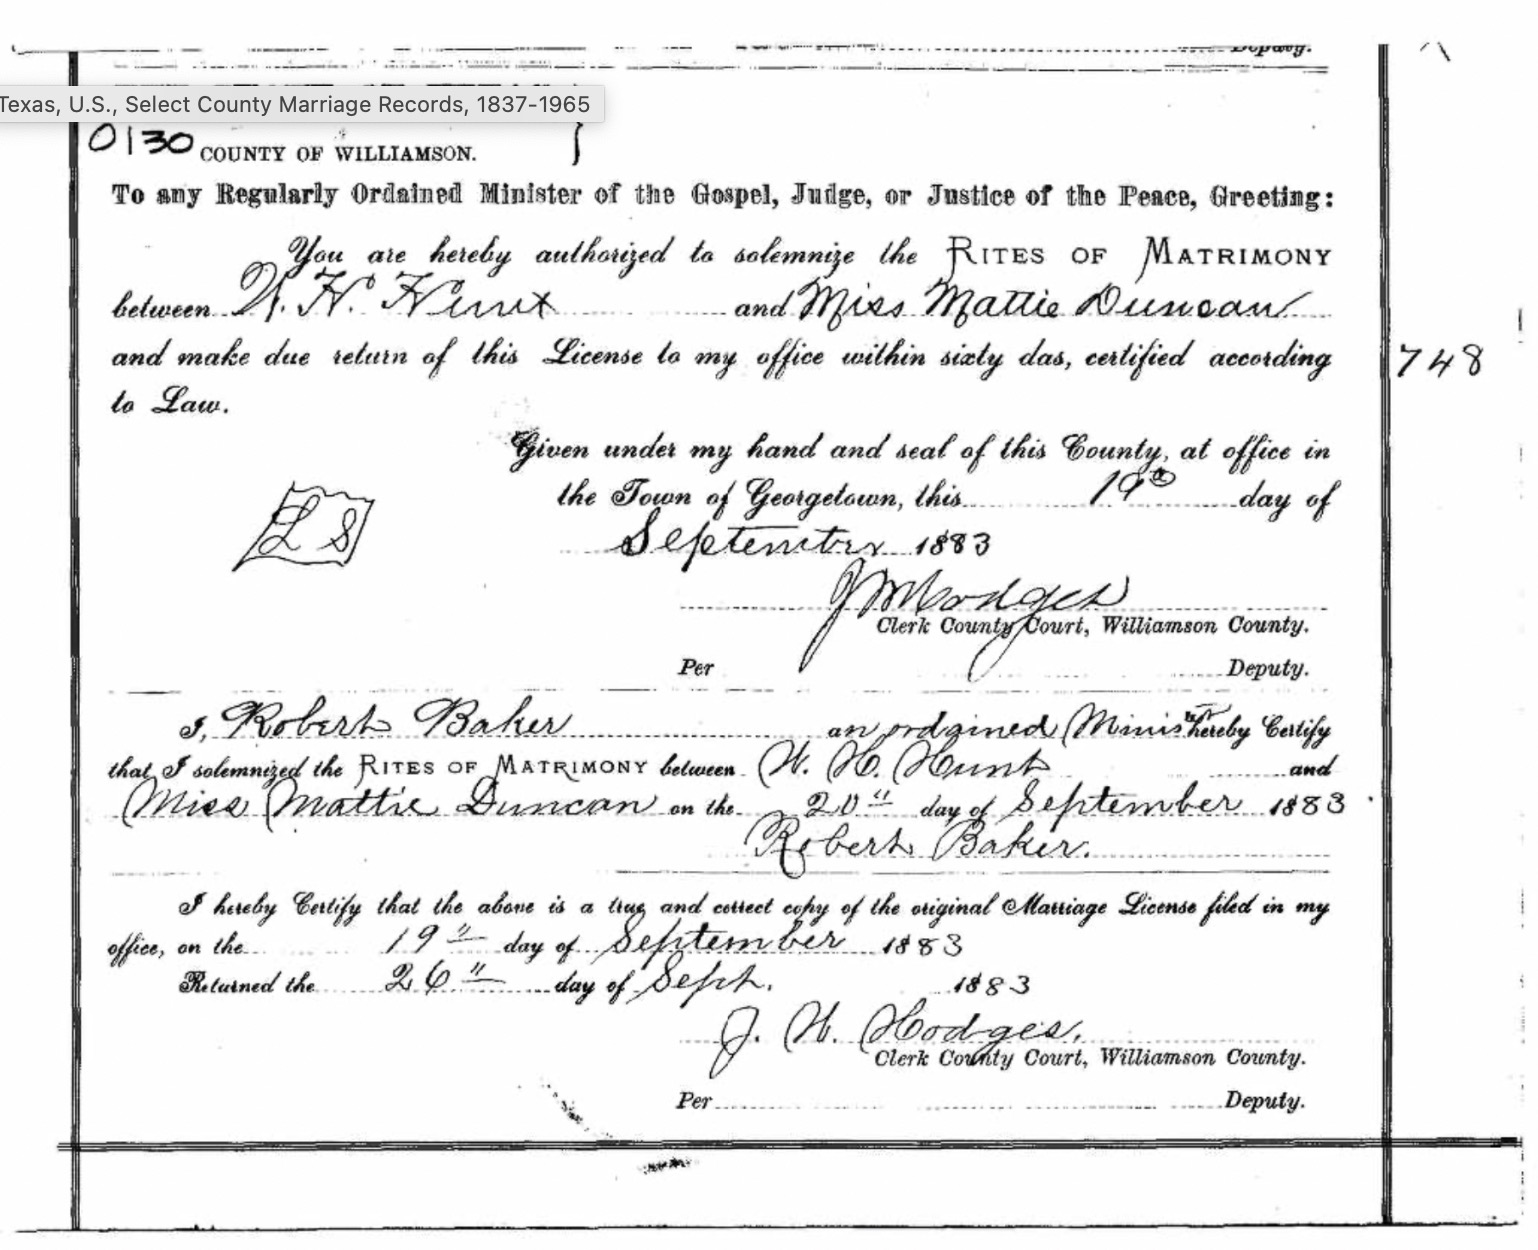 Deputy.
Texas, U.S., Select County Marriage Records, 1837-1965
0130 COUNTY OF WILLIAMSON. }
To any Regularly Ordained Minister of the Gospel, Judge, or Justice of the Peace, Greeting:
You are hereby authorized to solemnize the RITES OF MATRIMONY
between W. H. Hunt and Miss Mattie Duncan
and make due return of this License to my office within sixty das, certified according
748
to Law.
Given under my hand and seal of this County, at office in
the Town of Georgetown, this 19th day of
L S
September 1883
J W Hodges
Clerk County Court, Williamson County.
Per Deputy.
I, Robert Baker an ordained Minister hereby Certify
that I solemnized the RITES OF MATRIMONY between W. H. Hunt and
Miss Mattie Duncan on the 20" day of September 1883
Robert Baker.
I hereby Certify that the above is a true and correct copy of the original Marriage License filed in my
office, on the 19" day of September 1883
Returned the 26" day of Sept. 1883
J. W. Hodges.
Clerk County Court, Williamson County.
Per Deputy.